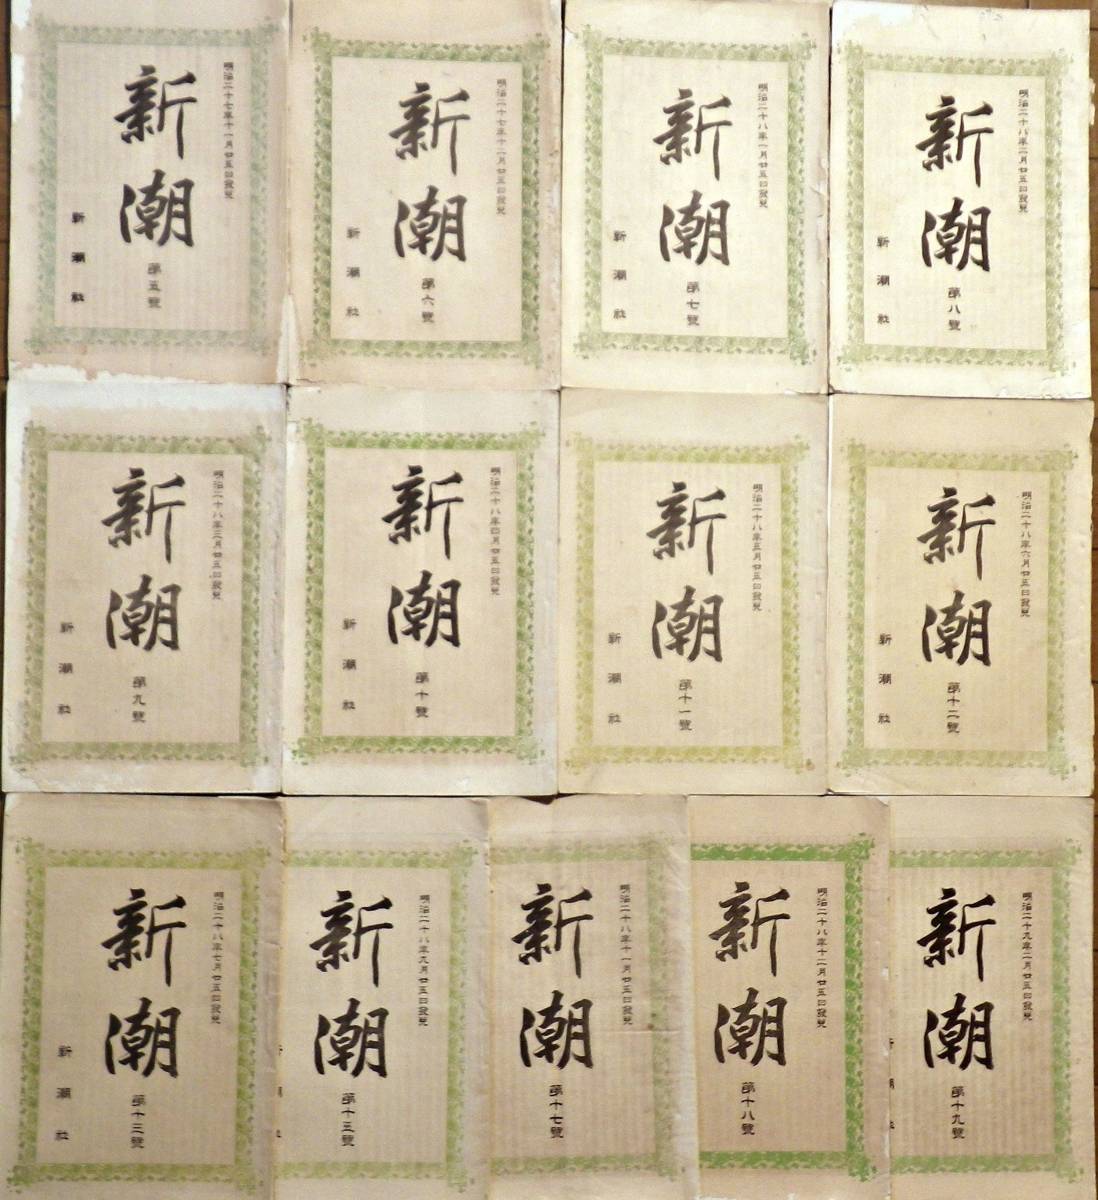 明治二十七年十一月廿五日發兌
新潮
第五號
新潮社
明治二十七年十二月廿五日發兌
新潮
第六號
新潮社
明治二十八年一月廿五日發兌
新潮
第七號
新潮社
明治二十八年二月廿五日發兌
新潮
第八號
新潮社
明治二十八年三月廿五日發兌
新潮
第九號
新潮社
明治二十八年四月廿五日發兌
新潮
第十號
新潮社
明治二十八年五月廿五日發兌
新潮
第十一號
新潮社
明治二十八年六月廿五日發兌
新潮
第十二號
新潮社
明治二十八年七月廿五日發兌
新潮
第十三號
新潮社
明治二十八年九月廿五日發兌
新潮
第十五號
明治二十八年十一月廿五日發兌
新潮
第十七號
明治二十八年十二月廿五日發兌
新潮
第十八號
明治二十九年二月廿五日發兌
新潮
第十九號